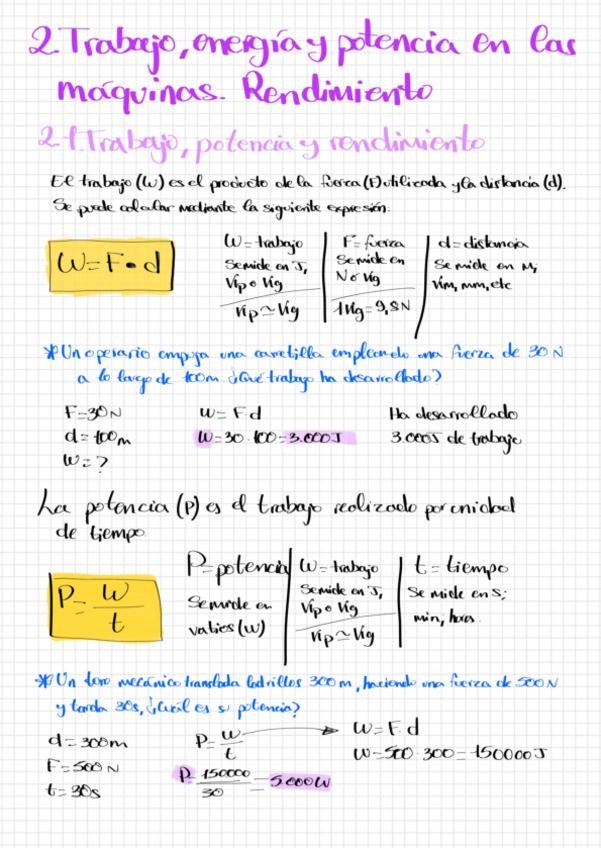 2. Trabajo, energía y potencia en las
máquinas. Rendimiento
2.1. Trabajo, potencia y rendimiento
El trabajo (W) es el producto de la fuerza (F) utilizada y la distancia (d).
Se puede calcular mediante la siguiente expresión:
W = F • d
W = trabajo
Se mide en J,
Kp o Kg
Kp ≃ Kg
F = fuerza
Se mide en
N o Kg
1Kg = 9,8N
d = distancia
Se mide en M;
Km, mm, etc
* Un operario empuja una carretilla empleando una fuerza de 30 N
a lo largo de 100m. ¿Qué trabajo ha desarrollado?
F = 30N
d = 100m
W = ?
W = F d
W = 30 · 100 = 3.000J
Ha desarrollado
3.000J de trabajo
La potencia (P) es el trabajo realizado por unidad
de tiempo
P = W
t
P = potencia
Se mide en
vatios (W)
W = trabajo
Se mide en J,
Kp o Kg
Kp ≃ Kg
t = tiempo
Se mide en s;
min, horas.
* Un toro mecánico translada ladrillos 300 m, haciendo una fuerza de 500N
y tarda 30s, ¿Cuál es su potencia?
d = 300m
F = 500 N
t = 30s
P = W
t
P = 150000 = 5000W
30
W = F. d
W = 500 · 300 = 150000J